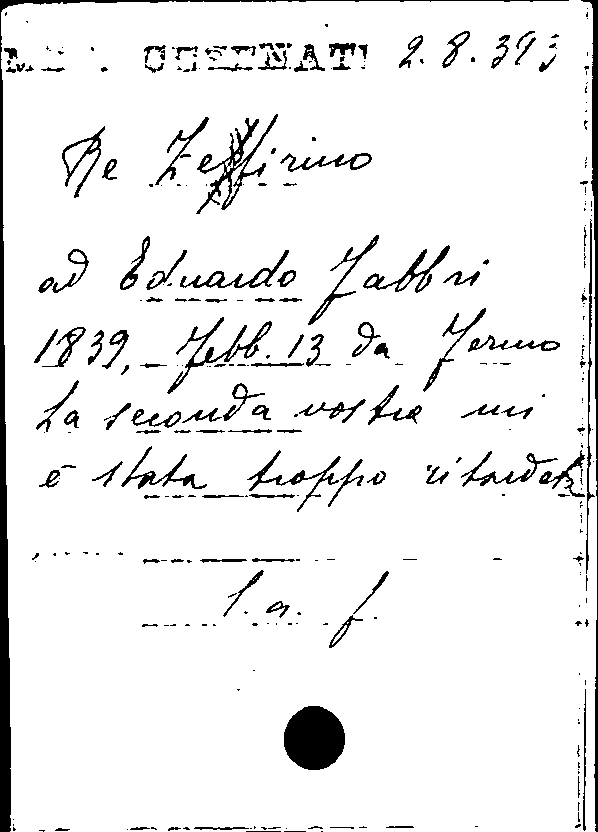 MSS. CESENATI 2.8.393
Re Zeffirino
ad Eduardo Fabbri
1839, Febb. 13 da Fermo
La seconda vostra mi
è stata troppo ritardata
l. a. f.